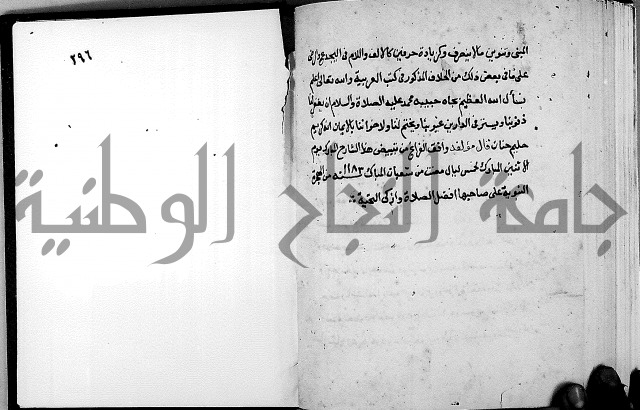 المبنى وتنوين مالا ينصرف وكزيادة حرفين كالالف واللام في
على ما في بعض ذلك من الخلاف المذكور في كتب العربية والله تعالى اعلم
نسأل الله العظيم بجاه حبيبه محمد عليه الصلاة والسلام ان يغفر لنا
ذنوبنا ويستر في الدارين عيوبنا ويختم لنا ولاخواننا بالايمان انه كريم
حليم حنان قال مؤلفه وافق الفراغ من تبييض هذا الشارح المبارك يوم
الاثنين المبارك لخمس ليال مضت من شعبان المبارك ١١٨٣ سنه من الهجرة
النبوية على صاحبها افضل الصلاة وازكى التحية
٢٩٦
جامعة النجاح الوطنية